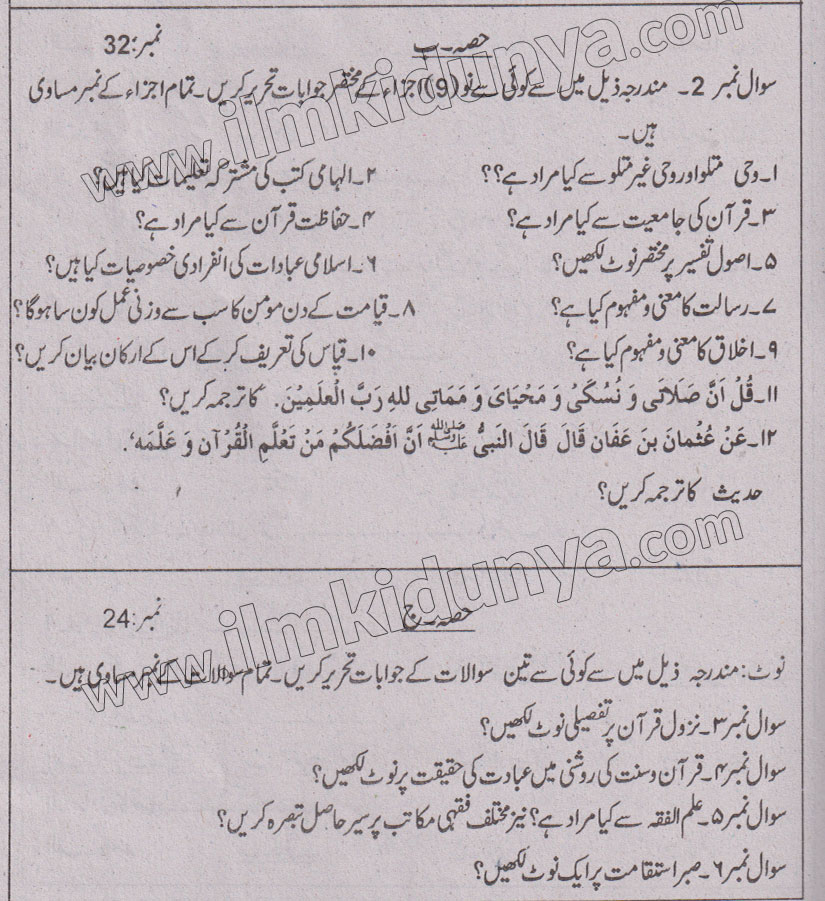 حصہ۔ب نمبر:32
سوال نمبر 2۔ مندرجہ ذیل میں سے کوئی سے نو (9) اجزاء کے مختصر جوابات تحریر کریں۔ تمام اجزاء کے نمبر مساوی
ہیں۔
۱۔وحی متلو اور وحی غیر متلو سے کیا مراد ہے؟؟ ۲۔الہامی کتب کی مشترکہ تعلیمات کیا ہیں؟
۳۔قرآن کی جامعیت سے کیا مراد ہے؟ ۴۔حفاظت قرآن سے کیا مراد ہے؟
۵۔اصول تفسیر پر مختصر نوٹ لکھیں؟ ۶۔اسلامی عبادات کی انفرادی خصوصیات کیا ہیں؟
۷۔رسالت کا معنی و مفہوم کیا ہے؟ ۸۔قیامت کے دن مومن کا سب سے وزنی عمل کون سا ہوگا؟
۹۔اخلاق کا معنی و مفہوم کیا ہے؟ ۱۰۔قیاس کی تعریف کر کے اس کے ارکان بیان کریں؟
۱۱۔قُلْ اَنَّ صَلَاتَی وَ نُسْکَیْ وَ مَحْیَایَ وَ مَمَاتِی للهِ رَبَّ الْعلَمِیْنَ. کا ترجمہ کریں؟
۱۲۔عَنْ عُثْمانَ بنَ عَفَان قَالَ قَالَ النَبیُّ ﷺ اَنَّ اَفْضَلَکُمْ مَنْ تَعْلَّمِ الْقُرْآن وَ عَلَّمَه‘.
حدیث کا ترجمہ کریں؟
www.ilmkidunya.com
حصہ۔ج نمبر:24
نوٹ: مندرجہ ذیل میں سے کوئی سے تین سوالات کے جوابات تحریر کریں۔ تمام سوالات کے نمبر مساوی ہیں۔
سوال نمبر۳۔نزول قرآن پر تفصیلی نوٹ لکھیں؟
سوال نمبر۴۔قرآن و سنت کی روشنی میں عبادت کی حقیقت پر نوٹ لکھیں؟
سوال نمبر۵۔علم الفقہ سے کیا مراد ہے؟ نیز مختلف فقہی مکاتب پر سیر حاصل تبصرہ کریں؟
سوال نمبر۶۔صبر استقامت پر ایک نوٹ لکھیں؟
www.ilmkidunya.com